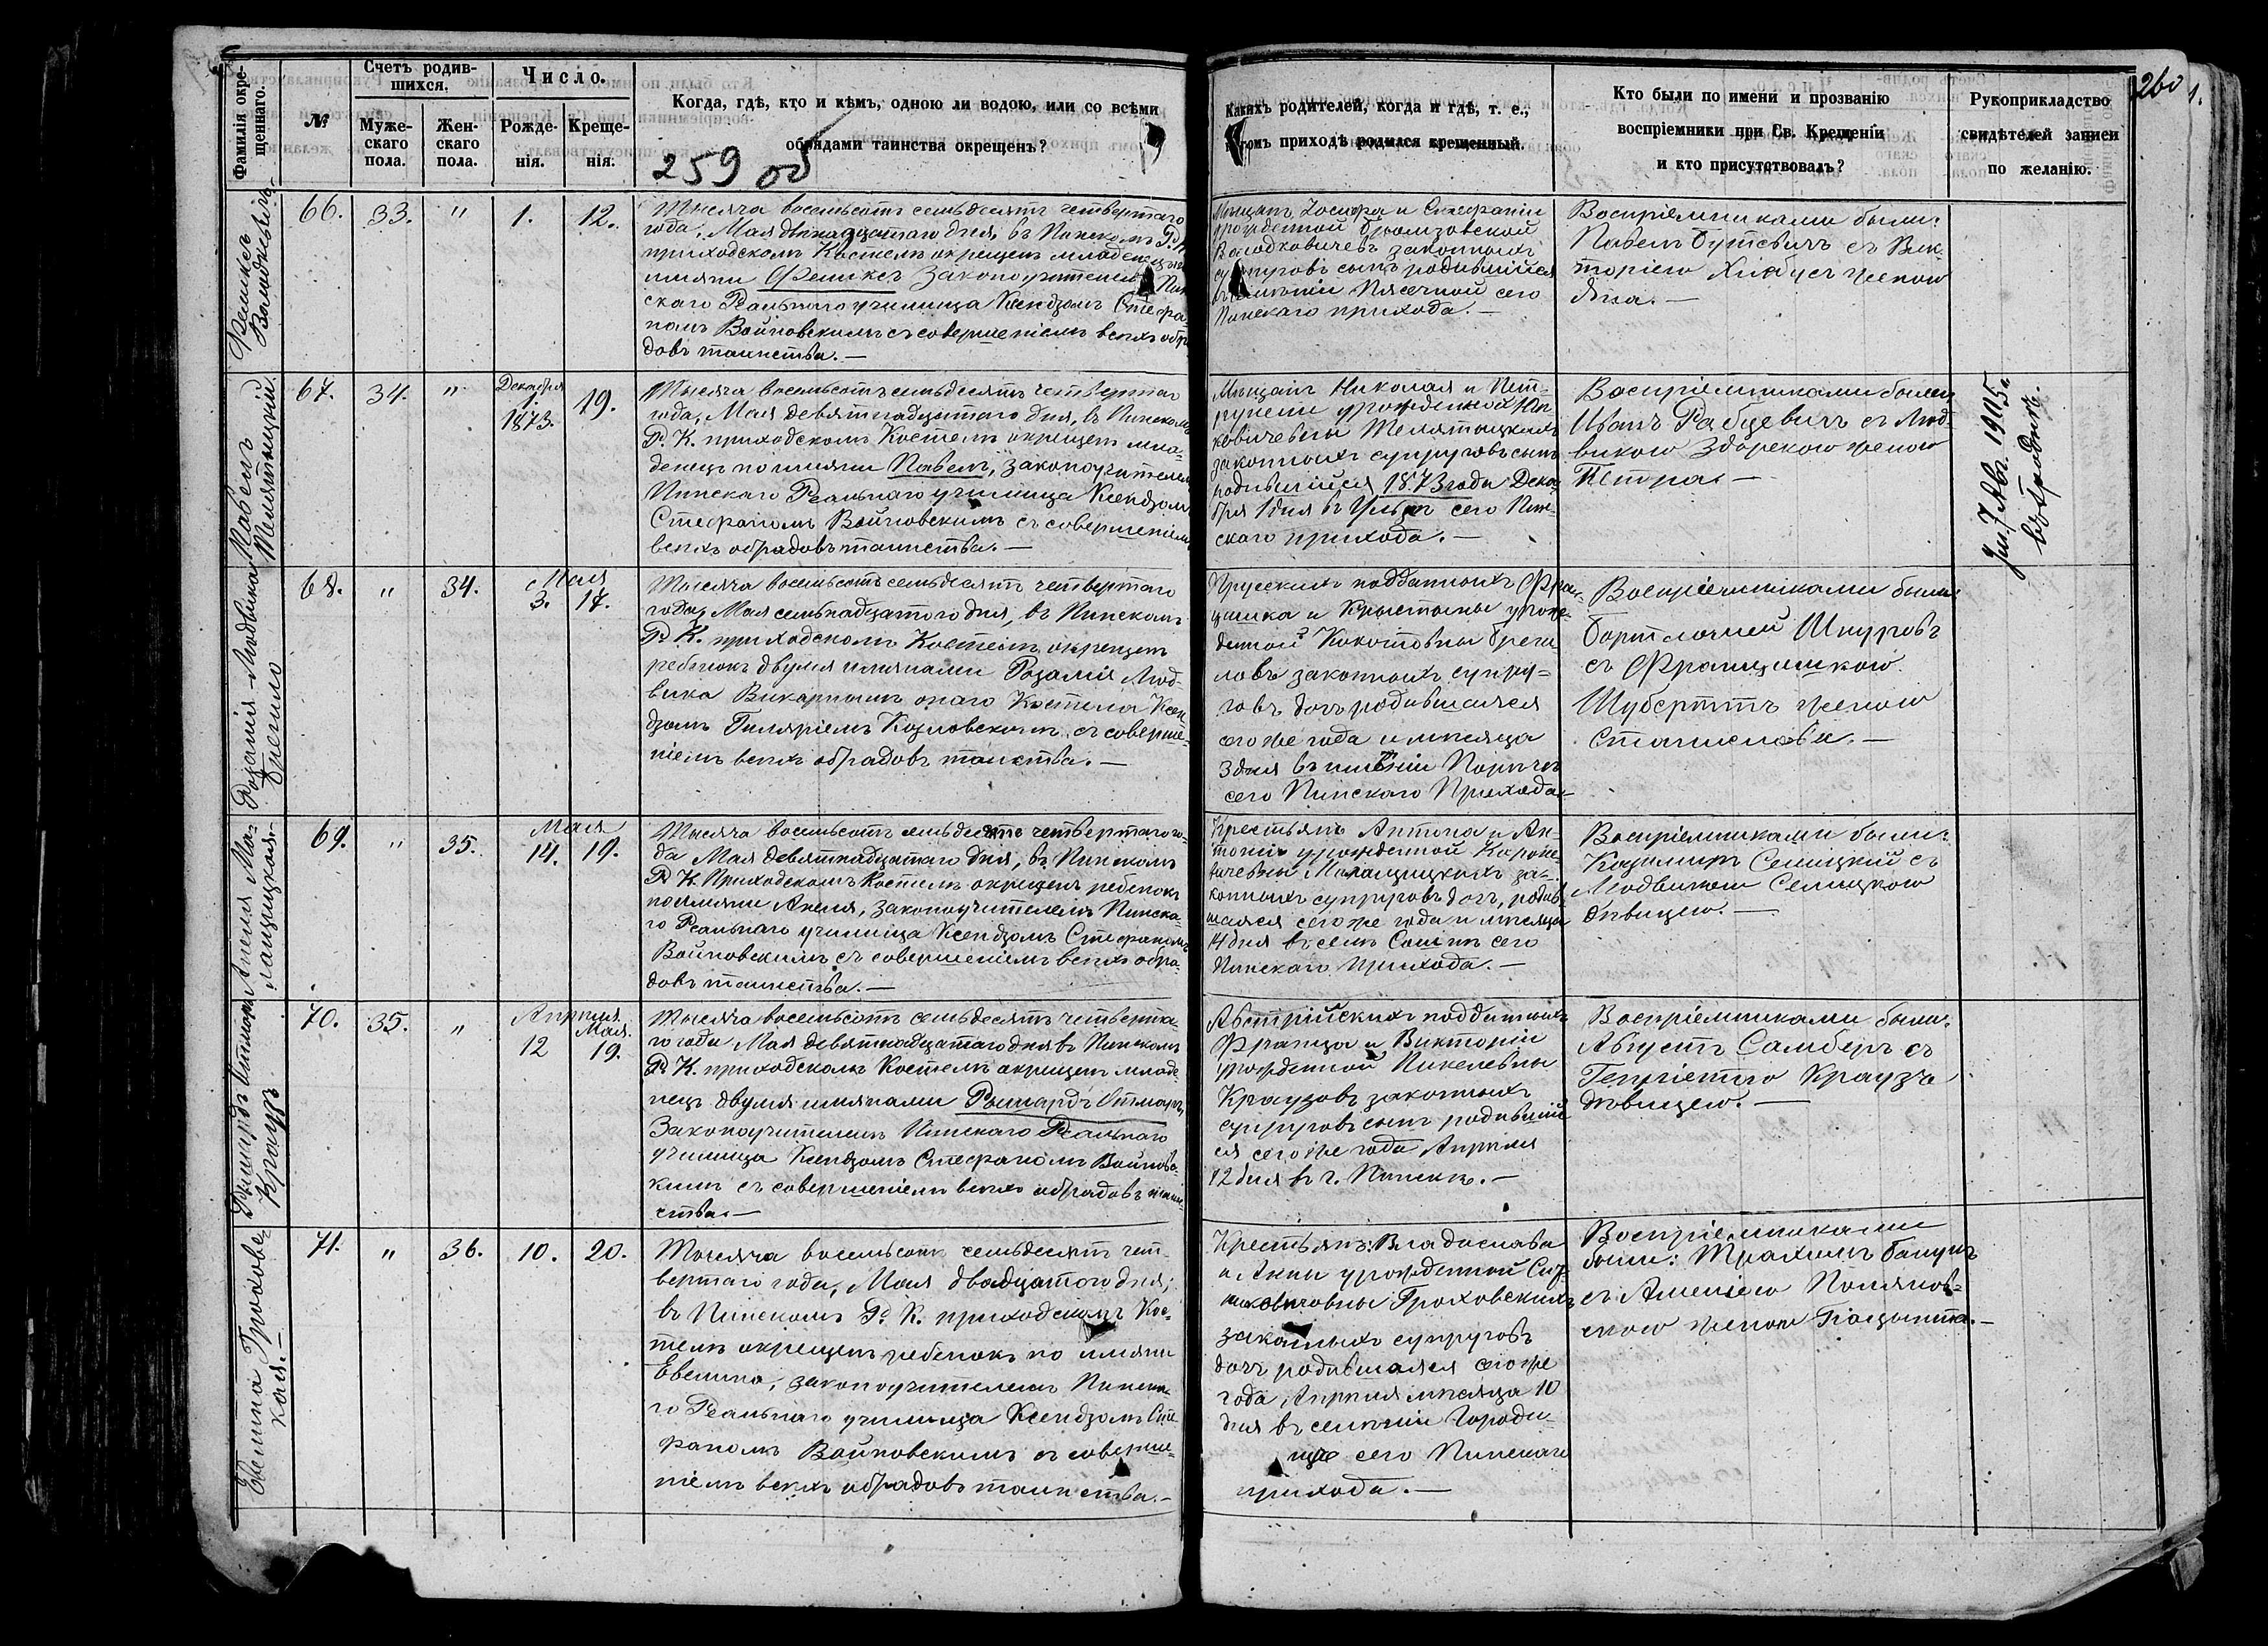 Фамилія окре-
щеннаго.
№
Счетъ родив-
шихся.
Муже-
скаго
пола.
Жен-
скаго
пола.
Число.
Рожде-
нія.
Креще-
нія.
Когда, гдѣ, кто и кѣмъ, одною ли водою, или со всѣми
обрядами таинства окрещенъ?
259 об
Какихъ родителей, когда и гдѣ, т. е.,
томъ приходѣ родился крещенный.
Кто были по имени и прозванію
воспріемники при Св. Крещеніи
и кто присутствовалъ?
Рукоприкладство
свидѣтелей записи
по желанію.
260
Феликсъ
Володкевичъ.
66.
33.
"
1.
12.
Тысяча восемьсотъ семьдесятъ четвертаго
года, Мая двѣнадцатаго дня, въ Пинскомъ Р. К.
приходскомъ Костелѣ окрещенъ младенецъ
имяни Феликсъ Законоучителемъ Пин
скаго Реальнаго училища Ксендзомъ Стефа-
номъ Войновскимъ съ совершеніемъ всѣхъ обря
довъ таинства.—
Мѣщанъ Іосифа и Стефаніи
урожденной
Володковичевъ законныхъ
супруговъ сынъ родившійся
въ имѣніи Пясечной сего
Пинскаго прихода.—
Воспріемниками были:
Павелъ Бутевичъ съ Вик-
торіею женою
Яна.—
Павелъ
Телятицкій.
67.
34.
"
Декабря
1.
1873.
19.
Тысяча восемьсотъ семьдесятъ четвертаго
года, Мая девятнадцатаго дня, въ Пинскомъ
Р. К. приходскомъ Костелѣ окрещенъ мла-
денецъ по имяни Павелъ, законоучителемъ
Пинскаго Реальнаго училища Ксендзомъ
Стефаномъ Войновскимъ съ совершеніемъ
всѣхъ обрядовъ таинства.—
Мѣщанъ Николая и Пет-
рунели урожденной Юн-
кевичевны Телятицкихъ
законныхъ супруговъ сынъ
родившійся 1873 года Дека-
бря 1 дня въ сего Пин-
скаго прихода.—
Воспріемниками были
Иванъ Рабцевичъ съ Люд-
викою Здорскою женою
Петра.—
7 Авг. 1905.
Розалія-Людвика
Брегило
68.
"
34.
Мая
3.
17.
Тысяча восемьсотъ семьдесятъ четвертаго
года, Мая семьнадцатого дня, въ Пинскомъ
Р. К. приходскомъ Костелѣ окрещенъ
ребенокъ двумя имянами Розалія Люд-
вика Викарнымъ онаго Костела Ксен-
дзомъ Гиляріемъ Козловскимъ съ соверше-
ніемъ всѣхъ обрядовъ таинства.—
Прусскихъ подданныхъ Фран-
цишка и Крыстины урож-
денной Кокотовны Бреги
ловъ законныхъ супру-
говъ дочь родившаяся
сего же года и мѣсяца
3 дня въ имѣніи Порѣчьѣ
сего Пинскаго Прихода.—
Воспріемниками были:
Бартломей Шнуровъ
съ Францишкою
Шубертъ женою
Станислава.—
Анеля Ма-
лащицкая.
69.
"
35.
Мая
14.
19.
Тысяча восемьсотъ семьдесятъ четвертаго го-
да Мая девятнадцатаго дня, въ Пинскомъ
Р. К. Приходскомъ Костелѣ окрещенъ ребенокъ
по имяни Анеля, законоучителемъ Пинска-
го Реальнаго училища Ксендзомъ Стефаномъ
Войновскимъ съ совершеніемъ всѣхъ обря-
довъ таинства.—
Крестьянъ Антона и Ан-
тоніи урожденной Короле-
вичевны Малащицкихъ за-
конныхъ супруговъ дочь, родив-
шаяся сего же года и мѣсяца
14 дня въ селѣ сего
Пинскаго прихода.—
Воспріемниками были:
Казимиръ Селицкій съ
Людвикою Селицкою
дѣвицею.—
Рышардъ Отмаръ
Краузъ
70.
35.
"
Апрѣля
12
Мая.
19.
Тысяча восемьсотъ семьдесятъ четверта-
го года Мая девятнадцатаго дня въ Пинскомъ
Р. К. приходскомъ Костелѣ окрещенъ младе-
нецъ двумя имянами Рышардъ Отмаръ,
Законоучителемъ Пинскаго Реальнаго
училища Ксендзомъ Стефаномъ Войновс-
кимъ съ совершеніемъ всѣхъ обрядовъ таин-
ства.—
Австрійскихъ подданныхъ
Франца и Викторіи
урожденной Пикелевны
Краузовъ законныхъ
супруговъ сынъ родившій
ся сего же года Апрѣля
12 дня въ г. Пинскѣ.—
Воспріемниками были:
Августъ Самберъ съ
Генріетою Краузъ
дѣвицею.—
Евелина Гроховс-
кая.—
71.
"
36.
10.
20.
Тысяча восемьсотъ семьдесятъ чет-
вертаго года, Мая двадцатого дня,
въ Пинскомъ Р. К. приходскомъ Кос-
телѣ окрещенъ ребенокъ по имяни
Евелина, законоучителемъ Пинска-
го Реальнаго училища Ксендзомъ Сте-
фаномъ Войновскимъ съ соверше-
ніемъ всѣхъ обрядовъ таинства.—
Крестьянъ: Владислава
и Анны урожденной
Гроховскихъ
законныхъ супруговъ
дочь родившаяся сего же
года Апрѣля мѣсяца 10
дня въ селеніи Городи-
ще сего Пинскаго
прихода.—
Воспріемниками
были: Бакунъ
съ Поляков-
скою женою Гіацынта.—